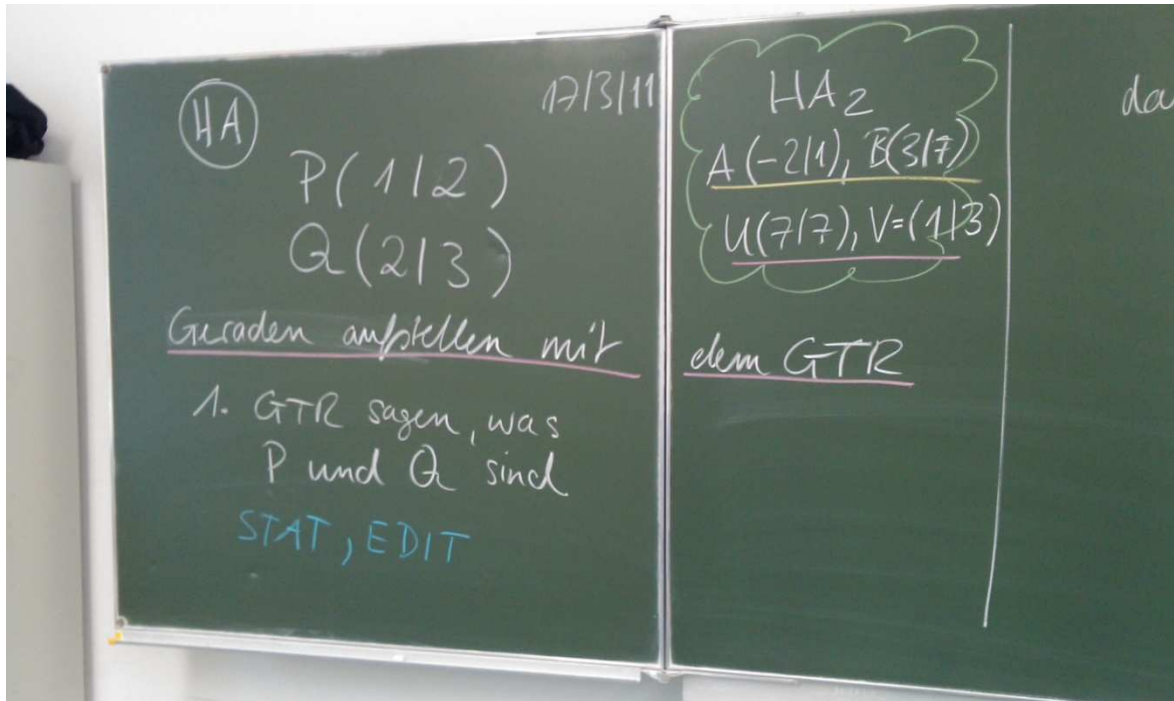 HA
17/3/11
P(1|2)
Q(2|3)
Geraden aufstellen mit dem GTR
1. GTR sagen, was
P und Q sind
STAT, EDIT
HA2
A(-2|1), B(3|7)
U(7|7), V=(1|3)
da